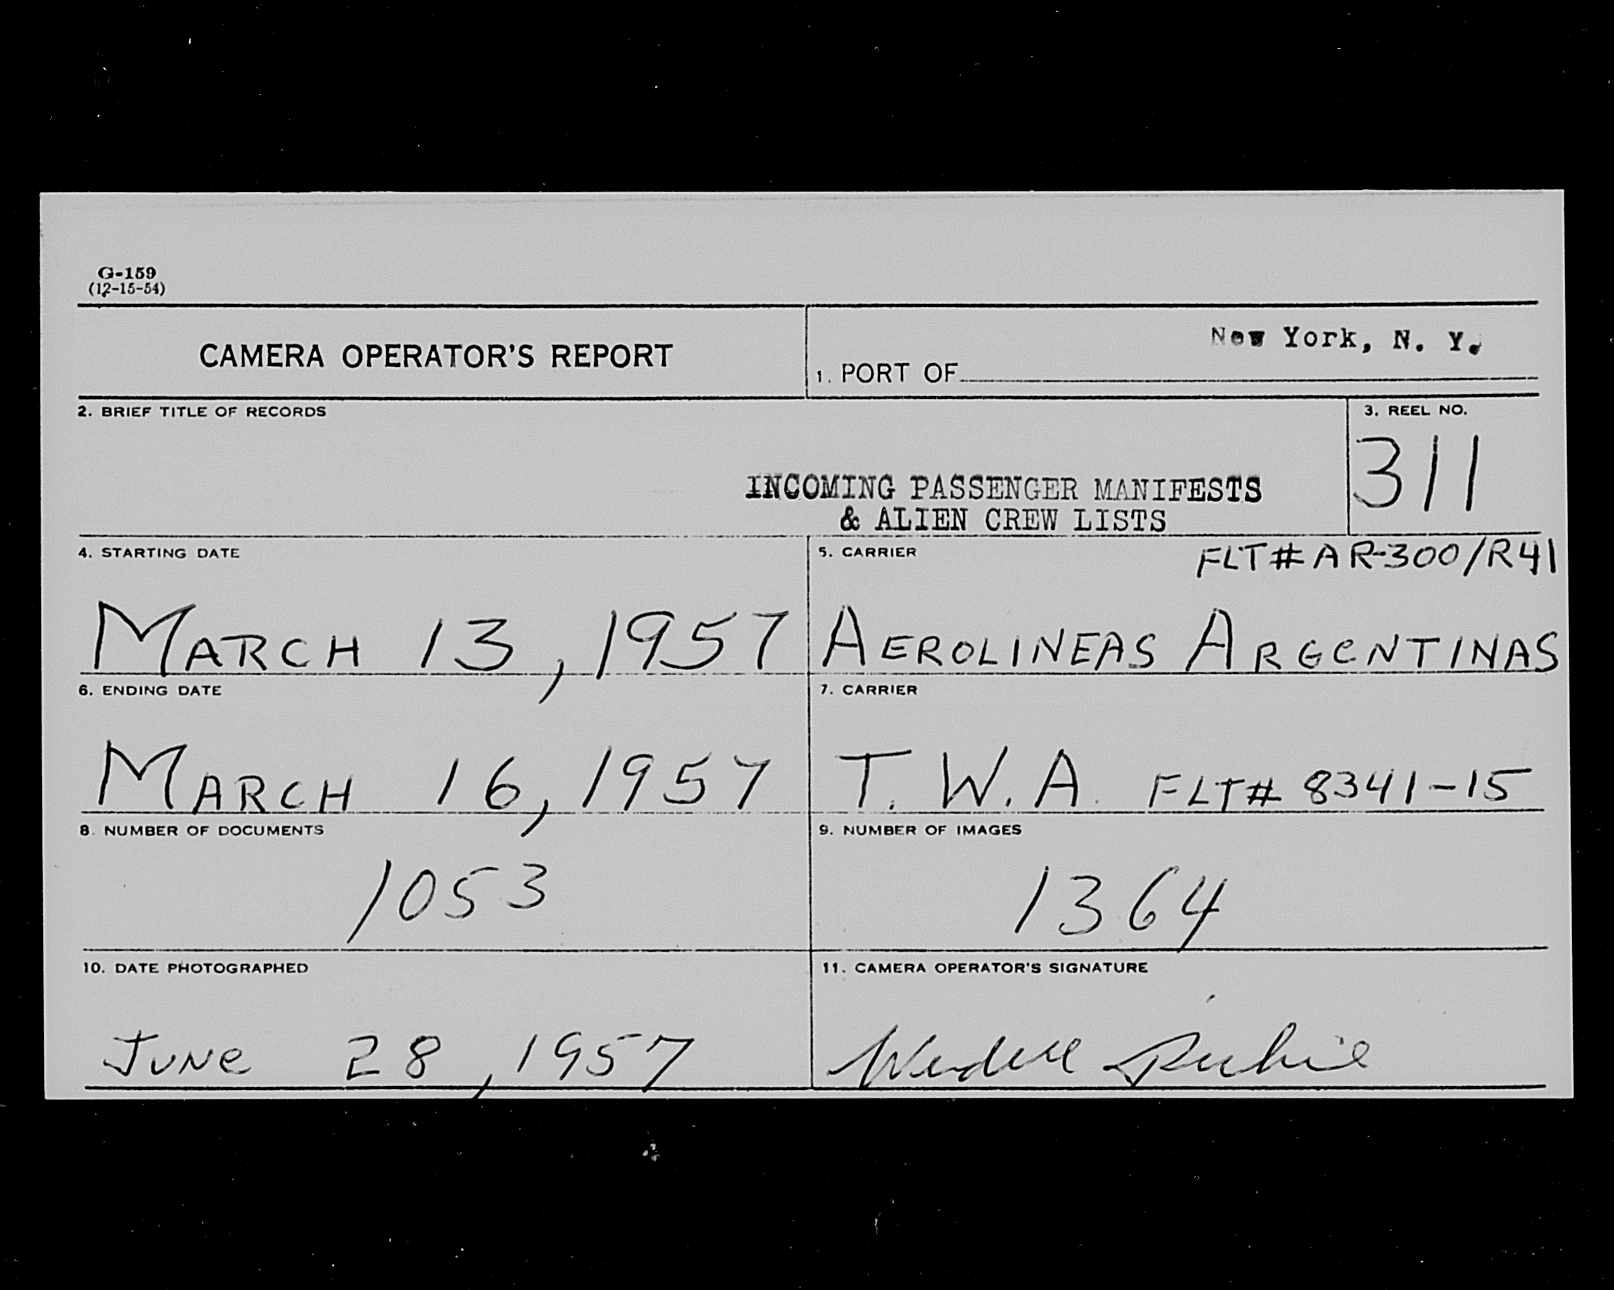 G-159
(12-15-54)
CAMERA OPERATOR'S REPORT
1. PORT OF New York, N. Y.
2. BRIEF TITLE OF RECORDS
INCOMING PASSENGER MANIFESTS
& ALIEN CREW LISTS
3. REEL NO.
311
4. STARTING DATE
MARCH 13, 1957
5. CARRIER FLT# AR-300/R41
AEROLINEAS ARGENTINAS
6. ENDING DATE
MARCH 16, 1957
7. CARRIER
T. W. A. FLT# 8341-15
8. NUMBER OF DOCUMENTS
1053
9. NUMBER OF IMAGES
1364
10. DATE PHOTOGRAPHED
JUNe 28, 1957
11. CAMERA OPERATOR'S SIGNATURE
Wendell